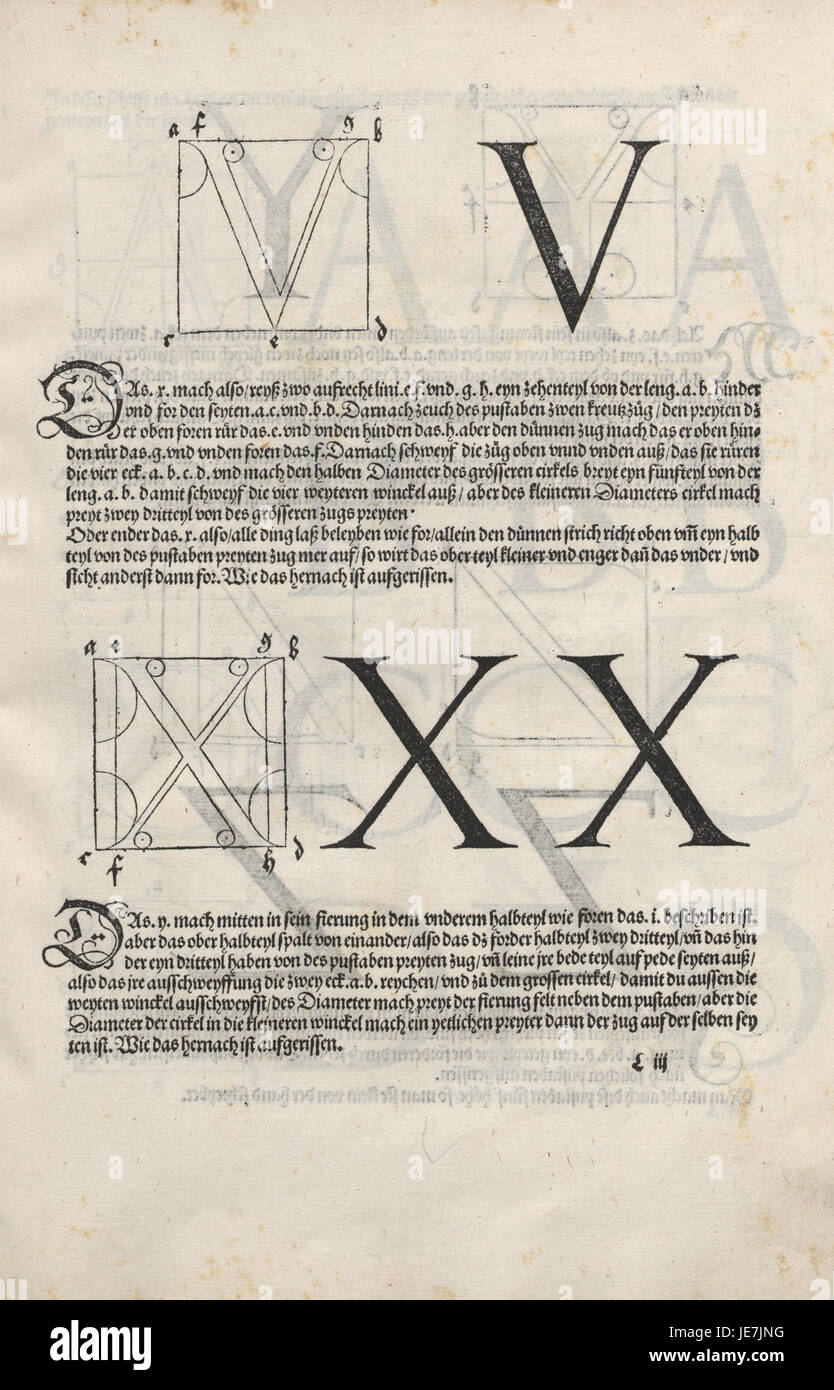 a f g b
V
c e d
DAs. x. mach also/reyß zwo aufrecht lini. e. f. vnd. g. h. eyn zehenteyl von der leng. a. b. hinder
vnd for den seyten. a. c. vnd. b. d. Darnach zeuch des pustaben zwen kreutzzüg/den preyten dz
er oben foren rür das. e. vnd vnden hinden das. h. aber den dünnen zug mach das er oben hin-
den rür das. g. vnd vnden foren das. f. Darnach schweyf die züg oben vnnd vnden auß/das sie rüren
die vier eck. a. b. c. d. vnd mach den halben Diameter des grösseren cirkels breyt eyn fünfteyl von der
leng. a. b. damit schweyf die vier weyteren winckel auß/aber des kleineren Diameters cirkel mach
preyt zwey dritteyl von des grösseren zugs preyten.
Oder ender das. x. also/alle ding laß beleyben wie for/allein den dünnen strich richt oben vm̄ eyn halb
teyl von des pustaben preyten zug mer auf/so wirt das ober teyl kleiner vnd enger dan̄ das vnder/vnd
sicht anderst dann for. Wie das hernach ist aufgerissen.
a e g b
X X
c f h d
DAs. y. mach mitten in sein fierung in dem vnderem halbteyl wie foren das. i. beschriben ist.
aber das ober halbteyl spalt von einander/also das dz förder halbteyl zwey dritteyl/vn̄ das hin
der eyn dritteyl haben von des pustaben preyten zug/vn̄ leine jre bede teyl auf pede seyten auß/
also das jre ausschweyffung die zwey eck. a. b. reychen/vnd zů dem grossen cirkel/damit du aussen die
weyten winckel ausschweyfst/des Diameter mach preyt der fierung felt neben dem pustaben/aber die
Diameter der cirkel in die kleineren winckel mach ein yetlichen preyter dann der zug auf der selben sey
ten ist. Wie das hernach ist aufgerissen.
L iij
alamy
Image ID: JE7JNG
www.alamy.com